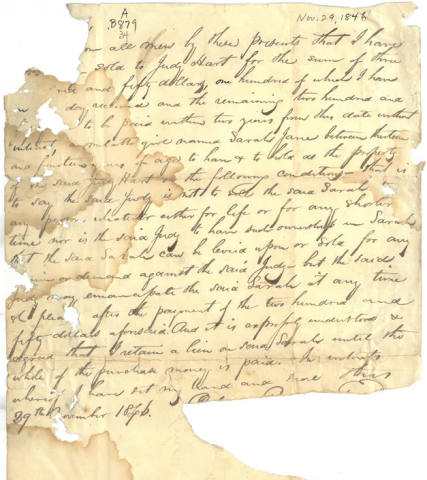 A
B879
34
Nov. 29, 1846
all men by these presents that I have
sold to Judy Hart for the sum of three
and fifty dollars, one hundred of which I have
day received and the remaining two hundred and
to be paid within two years from this date without
interest, mulatto girl named Sarah Jane between thirteen
and fourteen years of age, to have & to hold as the property
of the said Judy Hart on the following conditions – that is
to say the said Judy is not to sell the said Sarah
any person whatever either for life or for any shorter
time nor is the said Judy to have such ownership in Sarah
that the said Sarah can be levied upon or sold for any
demand against the said Judy – but the said
Judy may emancipate the said Sarah at any time
she pleases after the payment of the two hundred and
fifty dollars aforesaid. And it is expressly understood &
agreed that I retain a lien on said Sarah until the
whole of the purchase money is paid. In witness
whereof I have set my hand and seal this
29th November 1846.